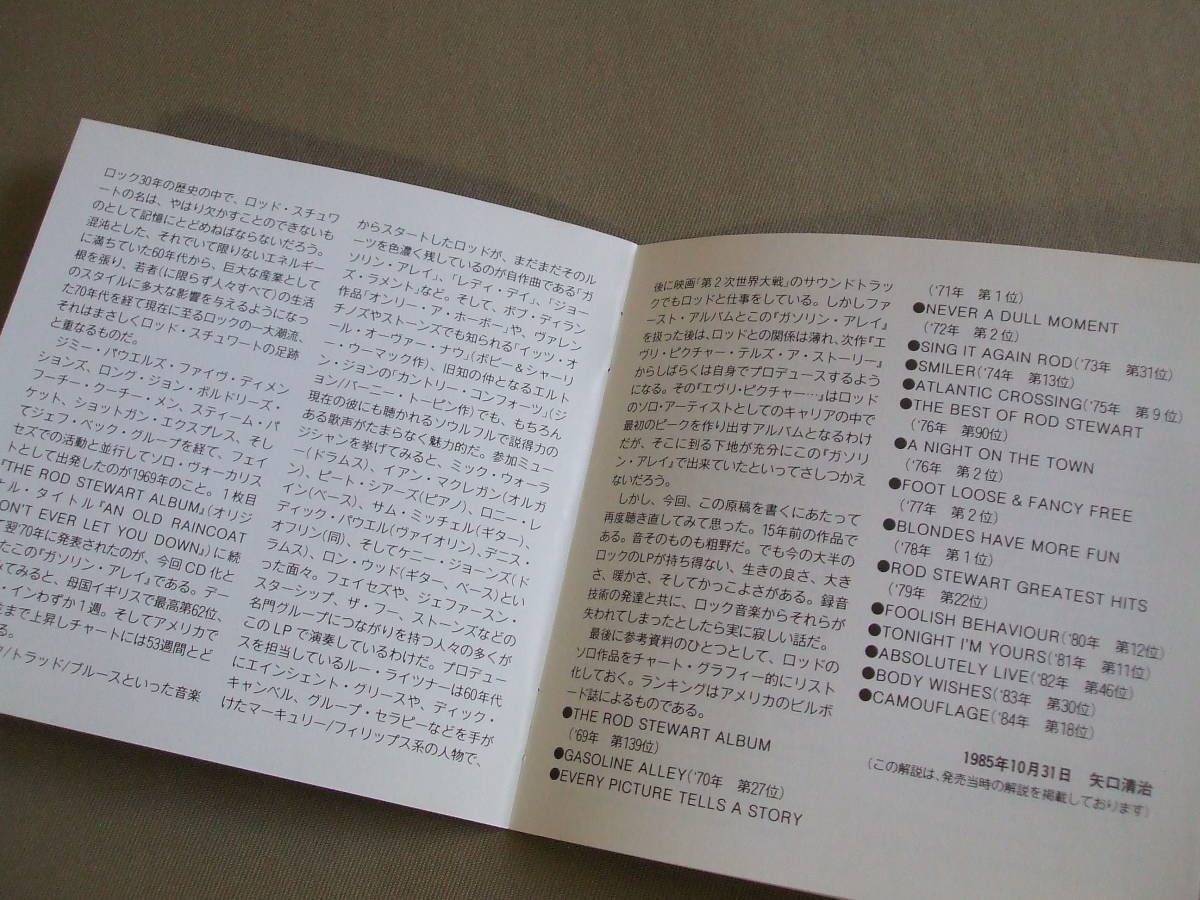 ロック30年の歴史の中で、ロッド・スチュワ
ートの名は、やはり欠かすことのできないも
のとして記憶にとどめねばならないだろう。
混沌とした、それでいて限りないエネルギー
に満ちていた60年代から、巨大な産業として
根を張り、若者(に限らず人々すべて)の生活
のスタイルに多大な影響を与えるようになっ
た70年代を経て現在に至るロックの一大潮流、
それはまさしくロッド・スチュワートの足跡
と重なるものだ。
ジミー・パウエルズ・ファイヴ・ディメン
ションズ、ロング・ジョン・ボルドリーズ・
フーチー・クーチー・メン、スティーム・パ
ケット、ショットガン・エクスプレス、そし
てジェフ・ベック・グループを経て、フェイ
セズでの活動と並行してソロ・ヴォーカリス
トとして出発したのが1969年のこと。1枚目
『THE ROD STEWART ALBUM』(オリジ
ナル・タイトル『AN OLD RAINCOAT
ON'T EVER LET YOU DOWN』)に続
て翌'70年に発表されたのが、今回CD化と
たこの『ガソリン・アレイ』である。デー
みてみると、母国イギリスで最高第62位、
・インわずか1週。そしてアメリカで
位まで上昇しチャートには53週間とど
る。
ク/トラッド/ブルースといった音楽
からスタートしたロッドが、まだまだそのル
ーツを色濃く残しているのが自作曲である「ガ
ソリン・アレイ」、「レディ・デイ」、「ジョー
ズ・ラメント」など。そして、ボブ・ディラン
作品「オンリー・ア・ホーボー」や、ヴァレン
チノズやストーンズでも知られる「イッツ・オ
ール・オーヴァー・ナウ」(ボビー&シャーリ
ー・ウーマック作)、旧知の仲となるエルト
ン・ジョンの「カントリー・コンフォーツ」(ジ
ョン/バーニー・トーピン作)でも、もちろん
現在の彼にも聴かれるソウルフルで説得力の
ある歌声がたまらなく魅力的だ。参加ミュー
ジシャンを挙げてみると、ミック・ウォーラ
ー(ドラムス)、イアン・マクレガン(オルガ
ン)、ピート・シアーズ(ピアノ)、ロニー・レ
イン(ベース)、サム・ミッチェル(ギター)、
ディック・パウエル(ヴァイオリン)、デニス・
オフリン(同)、そしてケニー・ジョーンズ(ド
ラムス)、ロン・ウッド(ギター、ベース)とい
った面々。フェイセズや、ジェファースン・
スターシップ、ザ・フー、ストーンズなどの
名門グループにつながりを持つ人々の多くが
このLPで演奏しているわけだ。プロデュー
スを担当しているルー・ライツナーは60年代
にエインシェント・グリースや、ディック・
キャンベル、グループ・セラピーなどを手が
けたマーキュリー/フィリップス系の人物で、
後に映画「第2次世界大戦」のサウンドトラッ
クでもロッドと仕事をしている。しかしファ
ースト・アルバムとこの『ガソリン・アレイ』
を扱った後は、ロッドとの関係は薄れ、次作『エ
ヴリ・ピクチャー・テルズ・ア・ストーリー』
からしばらくは自身でプロデュースするよう
になる。その『エヴリ・ピクチャー…』はロッド
のソロ・アーティストとしてのキャリアの中で
最初のピークを作り出すアルバムとなるわけ
だが、そこに到る下地が充分にこの『ガソリ
ン・アレイ』で出来ていたといってさしつかえ
ないだろう。
しかし、今回、この原稿を書くにあたって
再度聴き直してみて思った。15年前の作品で
ある。音そのものも粗野だ。でも今の大半の
ロックのLPが持ち得ない、生きの良さ、大き
さ、暖かさ、そしてかっこよさがある。録音
技術の発達と共に、ロック音楽からそれらが
失われてしまったとしたら実に寂しい話だ。
最後に参考資料のひとつとして、ロッドの
ソロ作品をチャート・グラフィー的にリスト
化しておく。ランキングはアメリカのビルボ
ード誌によるものである。
●THE ROD STEWART ALBUM
('69年 第139位)
●GASOLINE ALLEY('70年 第27位)
●EVERY PICTURE TELLS A STORY
('71年 第1位)
●NEVER A DULL MOMENT
('72年 第2位)
●SING IT AGAIN ROD('73年 第31位)
●SMILER('74年 第13位)
●ATLANTIC CROSSING('75年 第9位)
●THE BEST OF ROD STEWART
('76年 第90位)
●A NIGHT ON THE TOWN
('76年 第2位)
●FOOT LOOSE & FANCY FREE
('77年 第2位)
●BLONDES HAVE MORE FUN
('78年 第1位)
●ROD STEWART GREATEST HITS
('79年 第22位)
●FOOLISH BEHAVIOUR('80年 第12位)
●TONIGHT I'M YOURS('81年 第11位)
●ABSOLUTELY LIVE('82年 第46位)
●BODY WISHES('83年 第30位)
●CAMOUFLAGE('84年 第18位)
1985年10月31日 矢口清治
(この解説は、発売当時の解説を掲載しております)